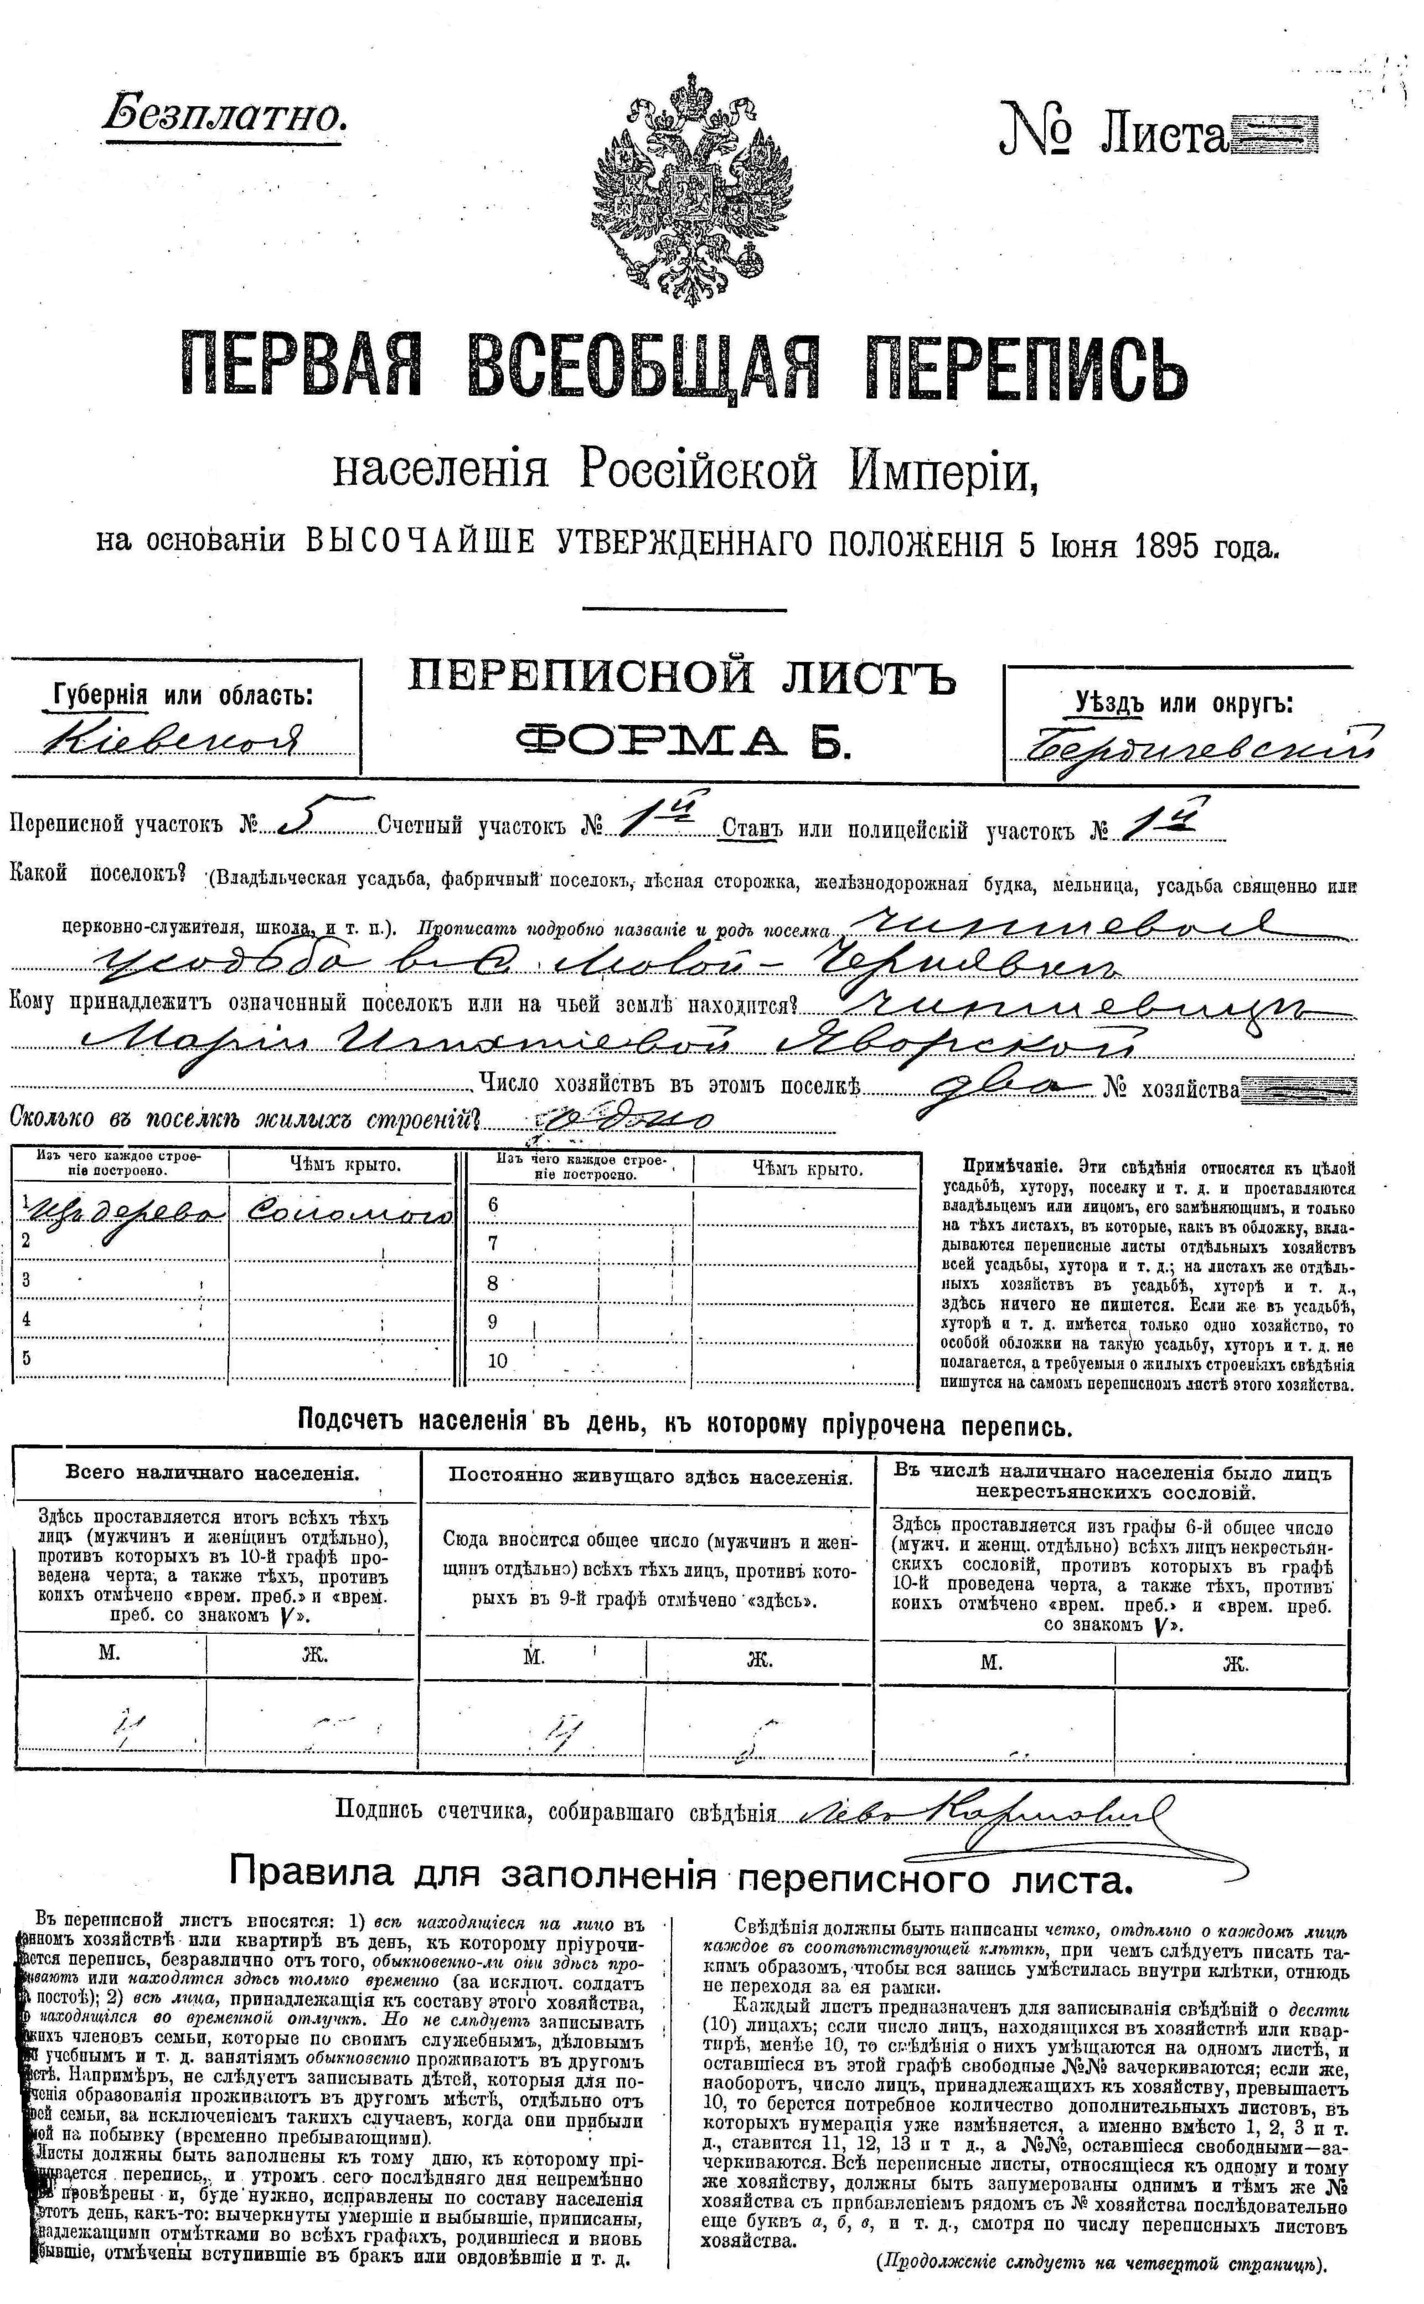 Безплатно.
№ Листа
ПЕРВАЯ ВСЕОБЩАЯ ПЕРЕПИСЬ
населенія Россійской Имперіи,
на основаніи ВЫСОЧАЙШЕ УТВЕРЖДЕННАГО ПОЛОЖЕНІЯ 5 Іюня 1895 года.
ПЕРЕПИСНОЙ ЛИСТЪ
ФОРМА Б.
Губернія или область:
Кіевская
Уѣздъ или округъ:
Бердичевскій
Переписной участокъ № 5 Счетный участокъ № 1й Станъ или полицейскій участокъ № 1й
Какой поселокъ? (Владѣльческая усадьба, фабричный поселокъ, лѣсная сторожка, желѣзнодорожная будка, мельница, усадьба священно или
церковно-служителя, школа, и т. п.). Прописать подробно названіе и родъ поселка чиншевая
усадьба в с. Новой-Чернявке
Кому принадлежитъ означенный поселокъ или на чьей землѣ находится? чиншевицѣ
Маріи Игнатіевой Яворской
Число хозяйствъ въ этомъ поселкѣ два № хозяйства
Сколько въ поселкѣ жилыхъ строеній? одно
Изъ чего каждое строе-
ніе построено.
Чѣмъ крыто.
Изъ чего каждое строе-
ніе построено.
Чѣмъ крыто.
1 Изъ дерева Соломою 6
2 7
3 8
4 9
5 10
Примѣчаніе. Эти свѣдѣнія относятся къ цѣлой
усадьбѣ, хутору, поселку и т. д. и проставляются
владѣльцемъ или лицомъ, его замѣняющимъ, и только
на тѣхъ листахъ, въ которые, какъ въ обложку, вкла-
дываются переписные листы отдѣльныхъ хозяйствъ
всей усадьбы, хутора и т. д.; на листахъ же отдѣль-
ныхъ хозяйствъ въ усадьбѣ, хуторѣ и т. д.,
здѣсь ничего не пишется. Если же въ усадьбѣ,
хуторѣ и т. д. имѣется только одно хозяйство, то
особой обложки на такую усадьбу, хуторъ и т. д. не
полагается, а требуемыя о жилыхъ строеніяхъ свѣдѣнія
пишутся на самомъ переписномъ листѣ этого хозяйства.
Подсчетъ населенія въ день, къ которому пріурочена перепись.
Всего наличнаго населенія.
Здѣсь проставляется итогъ всѣхъ тѣхъ
лицъ (мужчинъ и женщинъ отдѣльно),
противъ которыхъ въ 10-й графѣ про-
ведена черта, а также тѣхъ, противъ
коихъ отмѣчено «врем. преб.» и «врем.
преб. со знакомъ V».
М. Ж.
4 5
Постоянно живущаго здѣсь населенія.
Сюда вносится общее число (мужчинъ и жен-
щинъ отдѣльно) всѣхъ тѣхъ лицъ, противъ кото-
рыхъ въ 9-й графѣ отмѣчено «здѣсь».
М. Ж.
4 5
Въ числѣ наличнаго населенія было лицъ
некрестьянскихъ сословій.
Здѣсь проставляется изъ графы 6-й общее число
(мужч. и женщ. отдѣльно) всѣхъ лицъ некрестьян-
скихъ сословій, противъ которыхъ въ графѣ
10-й проведена черта, а также тѣхъ, противъ
коихъ отмѣчено «врем. преб.» и «врем. преб.
со знакомъ V».
М. Ж.
Подпись счетчика, собиравшаго свѣдѣнія
Правила для заполненія переписного листа.
Въ переписной листъ вносятся: 1) всѣ находящіеся на лицо въ
хозяйствѣ или квартирѣ въ день, къ которому пріурочи-
перепись, безразлично отъ того, обыкновенно-ли они здѣсь про-
или находятся здѣсь только временно (за исключ. солдатъ
постоѣ); 2) всѣ лица, принадлежащія къ составу этого хозяйства,
находящіяся во временной отлучкѣ. Но не слѣдуетъ записывать
членовъ семьи, которые по своимъ служебнымъ, дѣловымъ
учебнымъ и т. д. занятіямъ обыкновенно проживаютъ въ другомъ
Напримѣръ, не слѣдуетъ записывать дѣтей, которыя для по-
образованія проживаютъ въ другомъ мѣстѣ, отдѣльно отъ
семьи, за исключеніемъ такихъ случаевъ, когда они прибыли
на побывку (временно пребывающими).
Листы должны быть заполнены къ тому дню, къ которому прі-
перепись, и утромъ сего послѣдняго дня непремѣнно
провѣрены и, буде нужно, исправлены по составу населенія
этотъ день, какъ-то: вычеркнуты умершіе и выбывшіе, приписаны,
надлежащими отмѣтками во всѣхъ графахъ, родившіеся и вновь
отмѣчены вступившіе въ бракъ или овдовѣвшіе и т. д.
Свѣдѣнія должны быть написаны четко, отдѣльно о каждомъ лицѣ
каждое въ соотвѣтствующей клѣткѣ, при чемъ слѣдуетъ писать та-
кимъ образомъ, чтобы вся запись умѣстилась внутри клѣтки, отнюдь
не переходя за ея рамки.
Каждый листъ предназначенъ для записыванія свѣдѣній о десяти
(10) лицахъ; если число лицъ, находящихся въ хозяйствѣ или квар-
тирѣ, менѣе 10, то свѣдѣнія о нихъ умѣщаются на одномъ листѣ, и
оставшіеся въ этой графѣ свободные №№ зачеркиваются; если же,
наоборотъ, число лицъ, принадлежащихъ къ хозяйству, превышаетъ
10, то берется потребное количество дополнительныхъ листовъ, въ
которыхъ нумерація уже измѣняется, а именно вмѣсто 1, 2, 3 и т.
д., ставится 11, 12, 13 и т д., а №№, оставшіеся свободными—за-
черкиваются. Всѣ переписные листы, относящіеся къ одному и тому
же хозяйству, должны быть занумерованы однимъ и тѣмъ же №
хозяйства съ прибавленіемъ рядомъ съ № хозяйства послѣдовательно
еще буквъ а, б, в, и т. д., смотря по числу переписныхъ листовъ
хозяйства.
(Продолженіе слѣдуетъ на четвертой страницѣ).